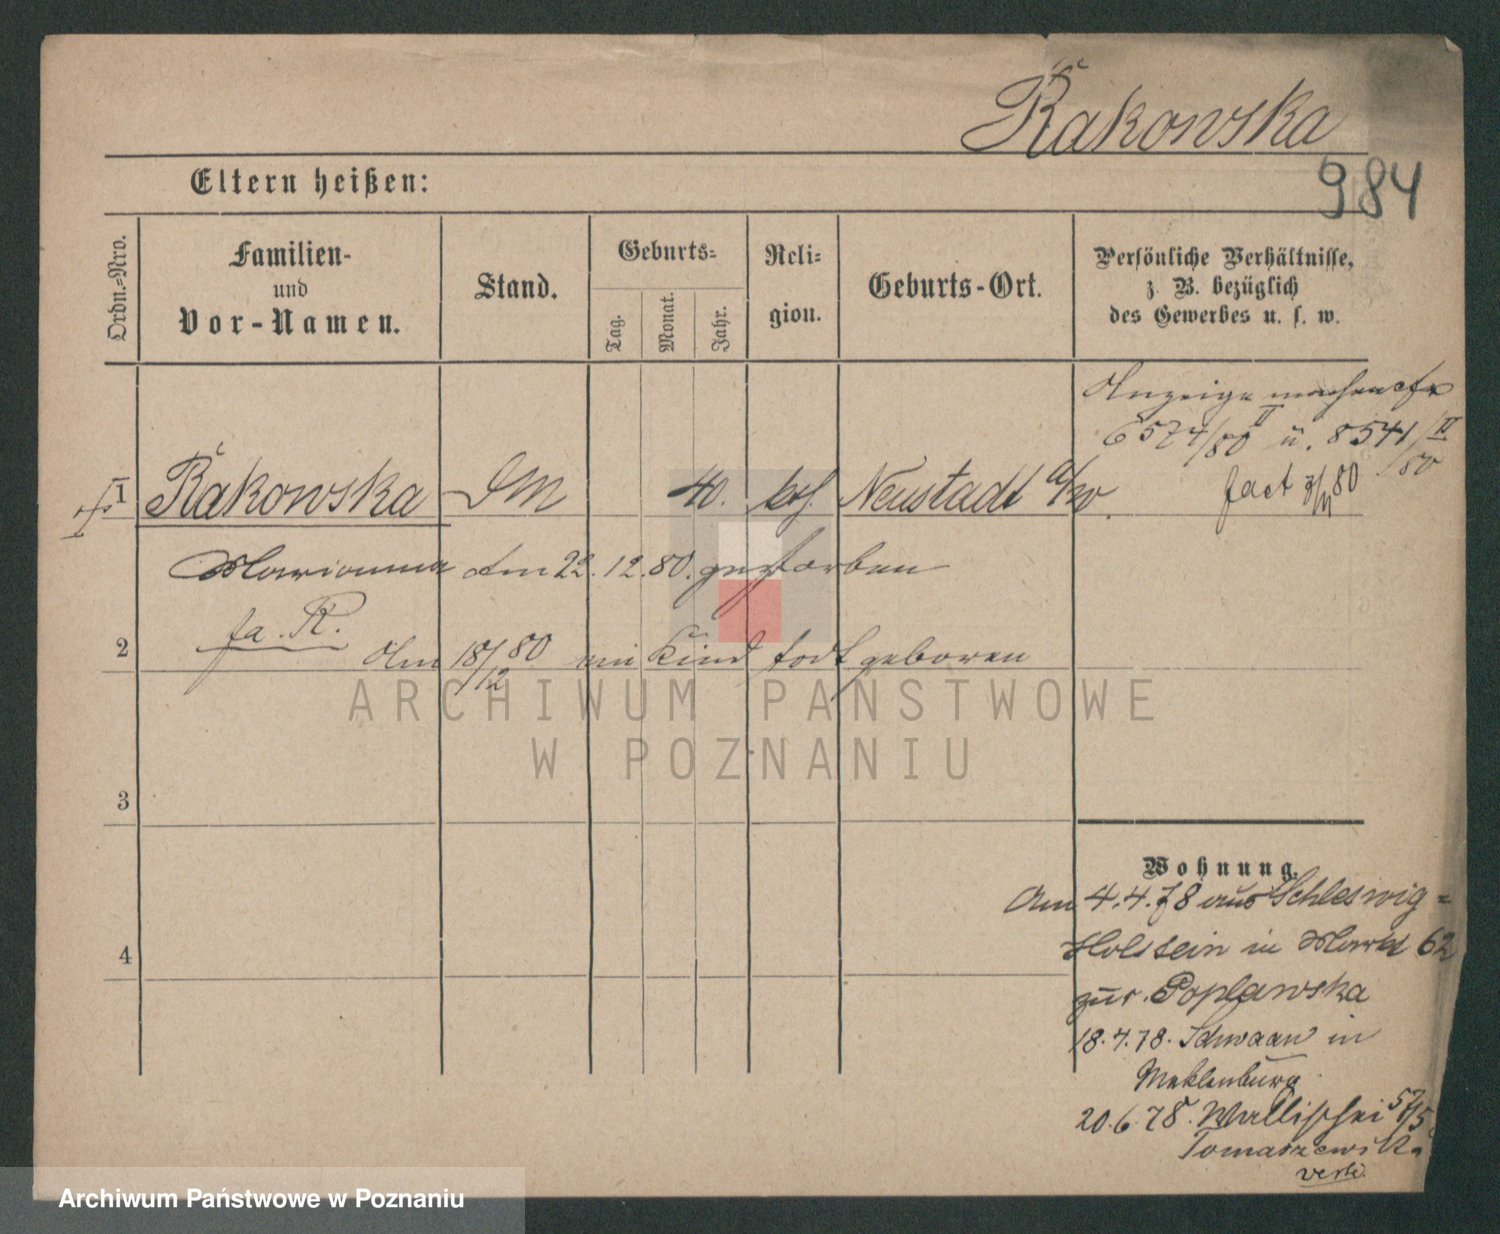 Rakowska
984
Eltern heißen:
Ordn.-Nro.
Familien-
und
Vor-Namen.
Stand.
Geburts-
Tag.
Monat.
Jahr.
Reli-
gion.
Geburts-Ort.
Persönliche Verhältnisse,
z. B. bezüglich
des Gewerbes u. s. w.
Anzeige machen cfr
6574/80 II u. 8541/80 II
fact 80
1 Rakowska DM 40. kth. Neustadt a/W.
Marianna am 22.12.80. gestorben
fa. R.
2 Am 18/12 80 ein Kind todt geboren
3
4
Wohnung.
Am 4.4.78 aus Schleswig-
Holstein in Markt 62
zur. Poplawska
18.4.78. Schwaan in
Meklenburg
20.6.78. Wallischei
Tomaszewska
ARCHIWUM PAŃSTWOWE
W POZNANIU
Archiwum Państwowe w Poznaniu